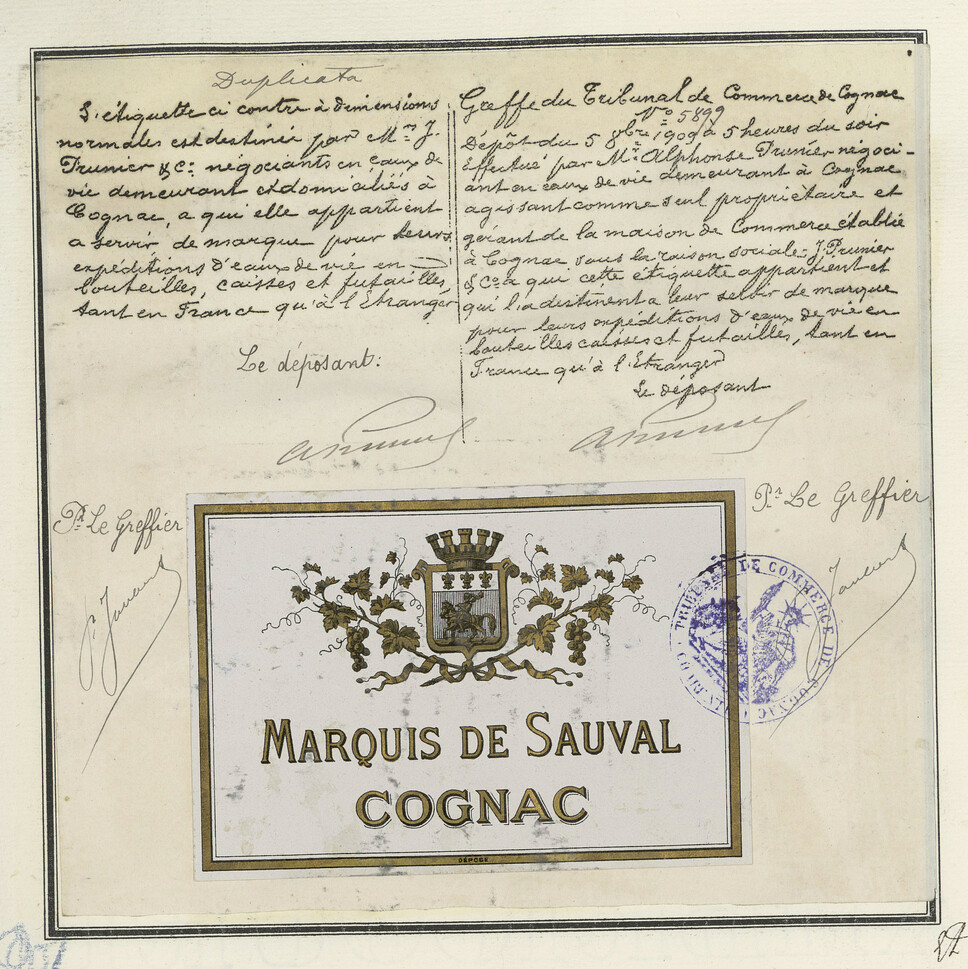 Duplicata
L'étiquette ci contre à dimensions
normales est destinée par Mrs J.
Prunier & Cie négociants en eaux de
vie demeurant et domiciliés à
Cognac, a qui elle appartient
a servir de marque pour leurs
expéditions d'eaux de vie en
bouteilles, caisses et futailles,
tant en France qu'à l'Etranger
Le déposant:
Greffe du Tribunal de Commerce de Cognac
No 5899
Dépôt du 5 8bre 1909 à 5 heures du soir
effectué par Mr Alphonse Prunier négoci-
ant en eaux de vie demeurant à Cognac
agissant comme seul propriétaire et
gérant de la maison de Commerce établie
à Cognac sous la raison sociale: J. Prunier
& Co a qui cette étiquette appartient et
qui l'a destinent a leur servir de marque
pour leurs expéditions d'eaux de vie en
bouteilles caisses et futailles, tant en
France qu'à l'Etranger
Le déposant
Pr Le Greffier
Pr Le Greffier
TRIBUNAL DE COMMERCE DE COGNAC
MARQUIS DE SAUVAL
COGNAC
DÉPOSÉ